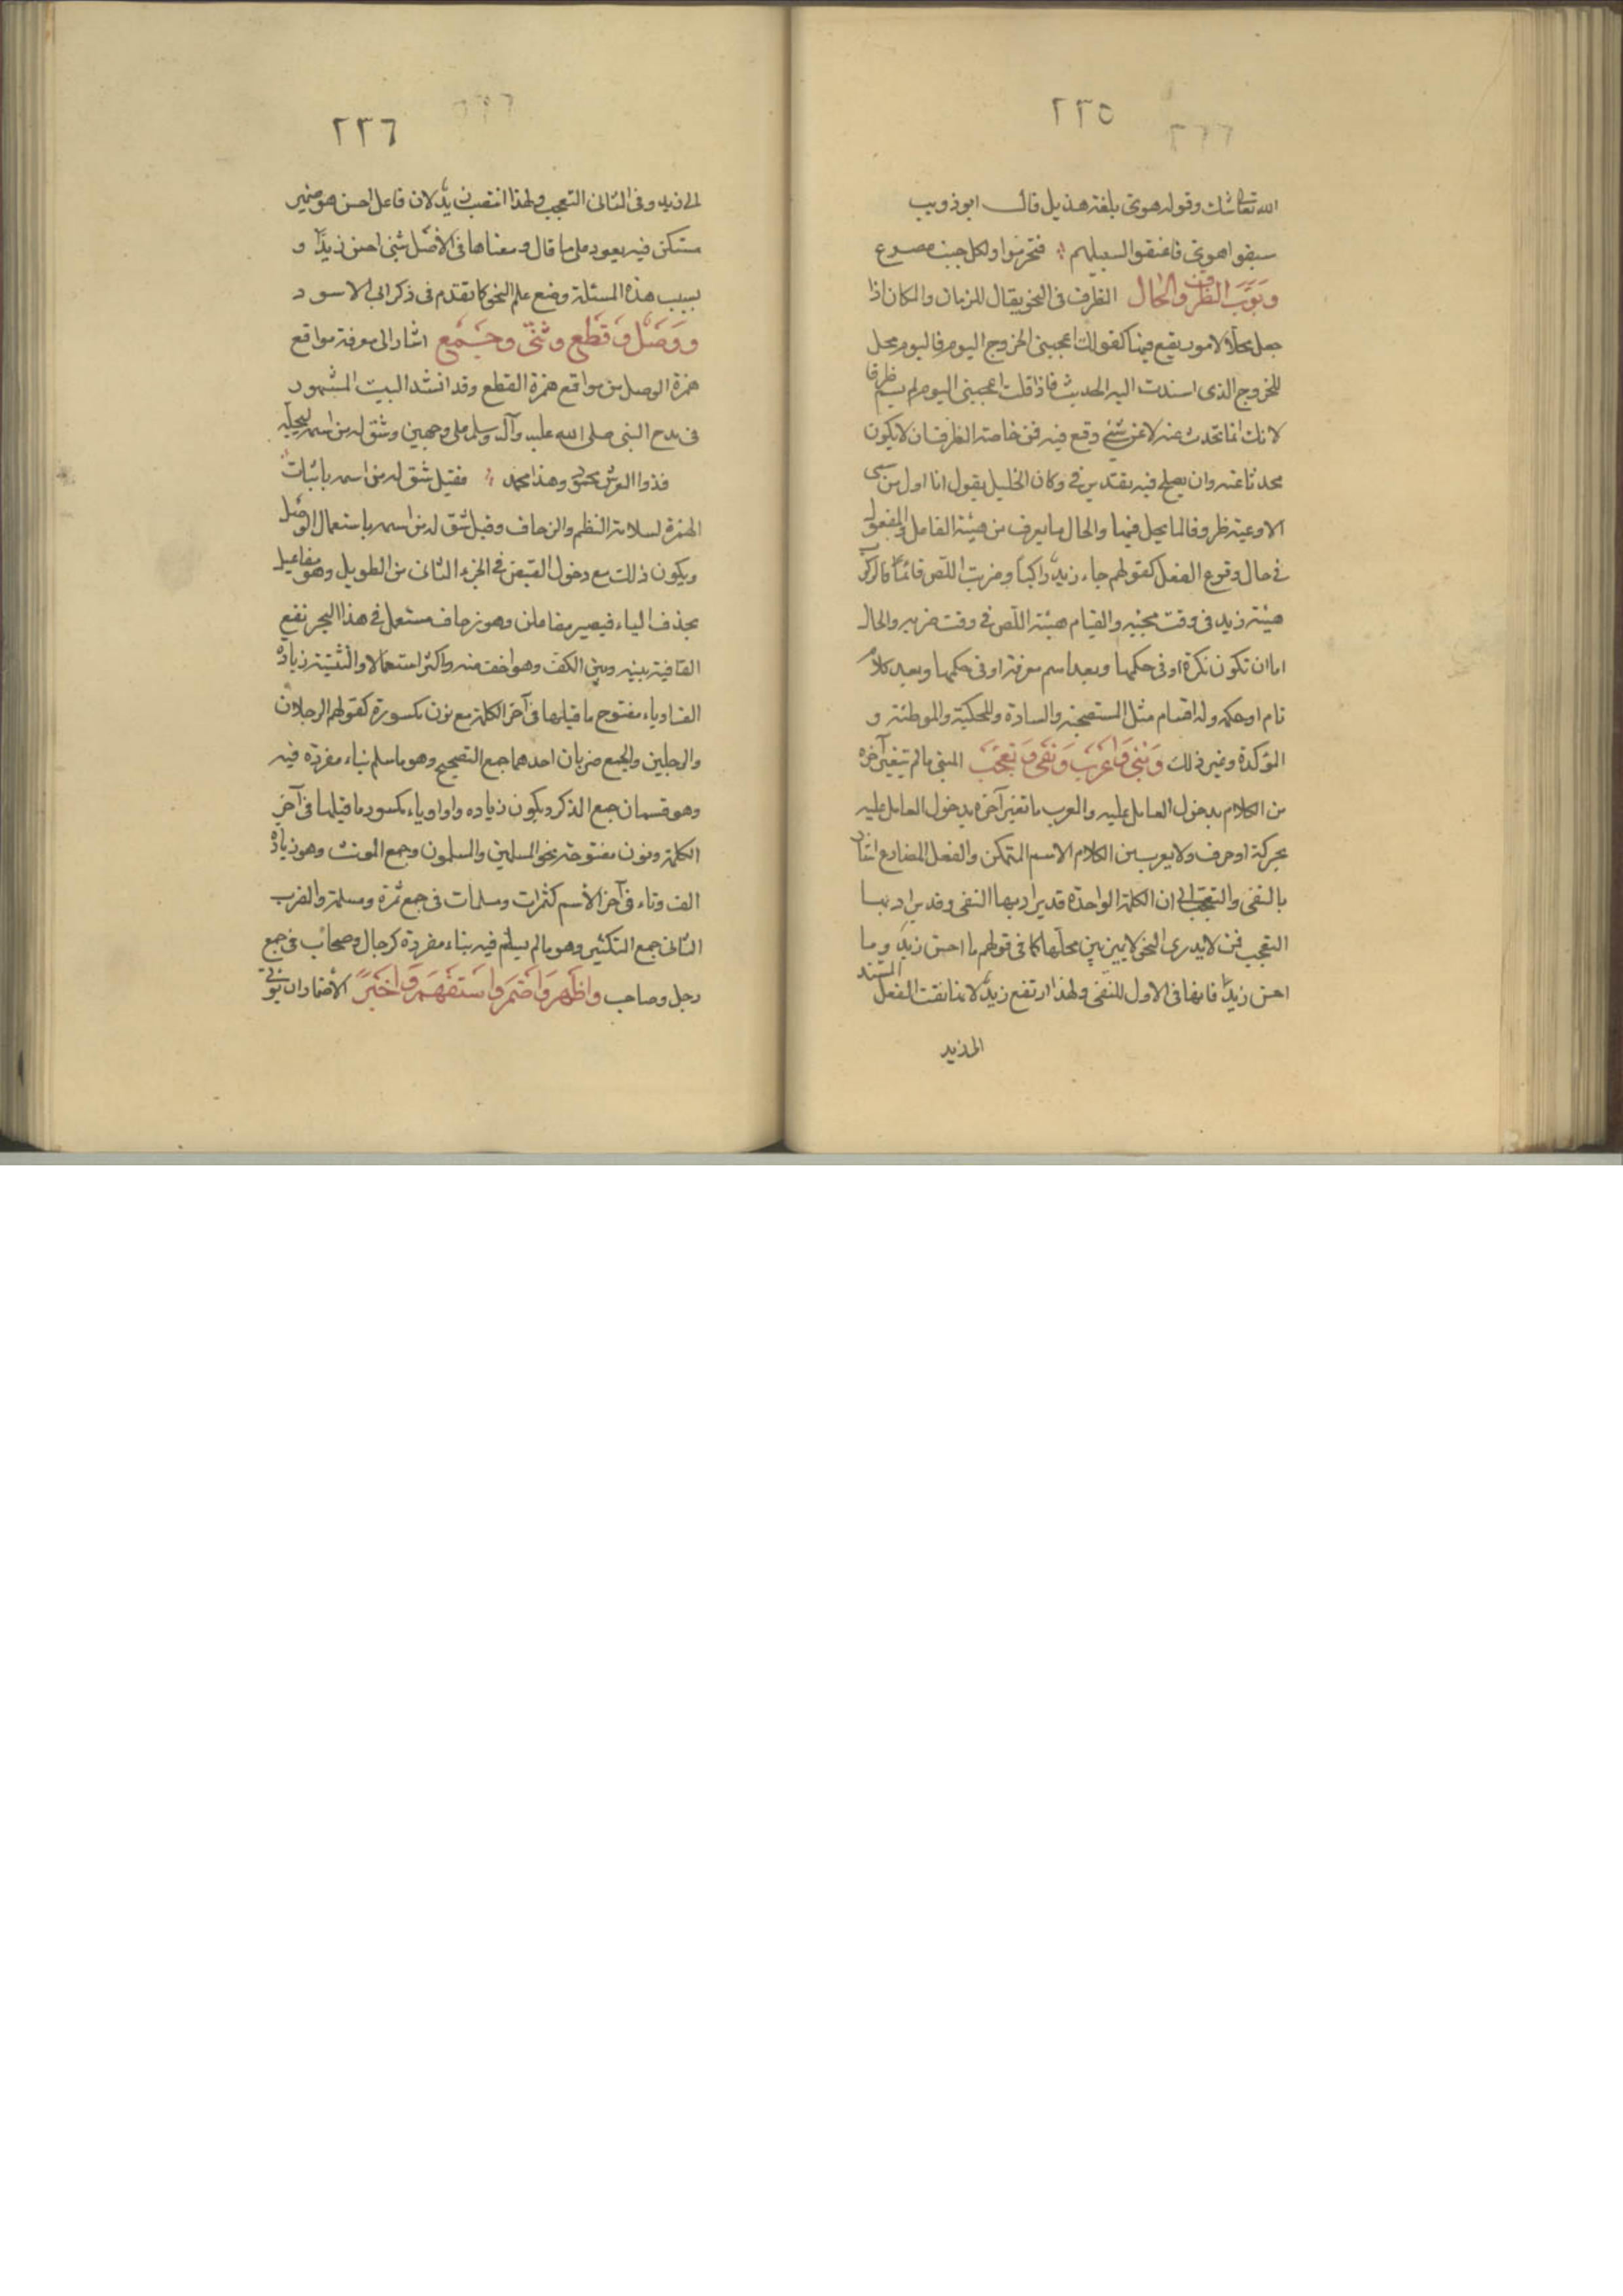 ٢٢٥
الله تعالى شك وقوله هوى بلغة هذيل قال ابو ذويب
سبقوا هوى فاعنقوا لسبيلهم فتخرموا ولكل جنب مصرع
وبوب الظرف والحال الظرف فى النحو يقال للزمان والمكان اذا
جعل محلا لامور يقع فيها كقولك اعجبنى الخروج اليوم فاليوم محل
للخروج الذى اسندت اليه الحديث فاذا قلت اعجبنى اليوم لم يسم ظرفا
لانك انما تحدث عنه لا عن شئ وقع فيه فمن خاصة الظرف ان لا يكون
محدثا عنه وان يصلح فيه تقدير فى وكان الخليل يقول انا اول من سمى
الاوعية ظروفا لما يحل فيها والحال ما يعرف من هيئة الفاعل والمفعول
فى حال وقوع الفعل كقولهم جاء زيد راكبا وضربت اللص قائما فالركوب
هيئة زيد فى وقت مجئيه والقيام هيئة اللص فى وقت ضربه والحال
اما ان تكون نكرة او فى حكمها وبعد اسم معرفة او فى حكمها وبعد كلام
تام او حكمه وله اقسام مثل المستصحبة والسادة والمحكية والموطئة و
المؤكدة وغير ذلك وبنى واعرب ونفى وتعجب المبنى مالم يتغير آخره
من الكلام بدخول العامل عليه والمعرب ما تغير آخره بدخول العامل عليه
بحركة او حرف ولا يعرب من الكلام الا الاسم المتمكن والفعل المضارع اشار
بالنفى والتعجب الى ان الكلمة الواحدة قد يراد بها النفى وقد يراد بها
التعجب فمن لا يدرى النحو لا يميز بين محلها كما فى قولهم ما احسن زيد وما
احسن زيدا فانها فى الاول للنفى ولهذا ارتفع زيد لانها نفت الفعل المسند
الى زيد
٢٢٦
الى زيد وفى الثانى التعجب ولهذا انتصب زيد لان فاعل احسن هو ضمير
مستكن فيه يعود على ما قال ومعناها فى الأصل شئ احسن زيدا و
بسبب هذه المسئلة وضع علم النحو كما تقدم فى ذكر ابى الاسود
ووصل وقطع وثنى وجمع اشار الى معرفة مواقع
همزة الوصل من مواقع همزة القطع وقد انشد البيت المشهور
فى مدح النبى صلى الله عليه وآله وسلم على وجهين وشق له من اسمه ليجله
فذوا العرش محمود وهذا محمد فقيل شق له من اسمه باثبات
الهمزة لسلامة النظم والزحاف وقيل شق له من اسمه باستعمال الوصل
ويكون ذلك مع دخول القبض فى الجزء الثانى من الطويل وهو مفاعيل
بحذف الياء فيصير مفاعلن وهو زحاف مستعمل فى هذا البحر تقع
القافية بينه وبين الكف وهو اخف منه واكثر استعمالا والتثنية زيادة
الف او ياء مفتوح ما قبلها فى آخر الكلمة مع نون مكسورة كقولهم الرجلان
والرجلين والجمع ضربان احدهما جمع التصحيح وهو ما سلم بناء مفرده فيه
وهو قسمان جمع المذكر ويكون زياده واو او ياء مكسور ما قبلها فى آخر
الكلمة ونون مفتوحة نحو المسلمين والمسلمون وجمع المونث وهو زيادة
الف وتاء فى آخر الأسم كثمرات ومسلمات فى جمع ثمرة ومسلمة والضرب
الثانى جمع التكثير وهو مالم يسلم فيه بناء مفرده كرجال وصحاب فى جمع
رجل وصاحب واظهر واضمر واستفهم واخبر الأضمار ان يؤتى